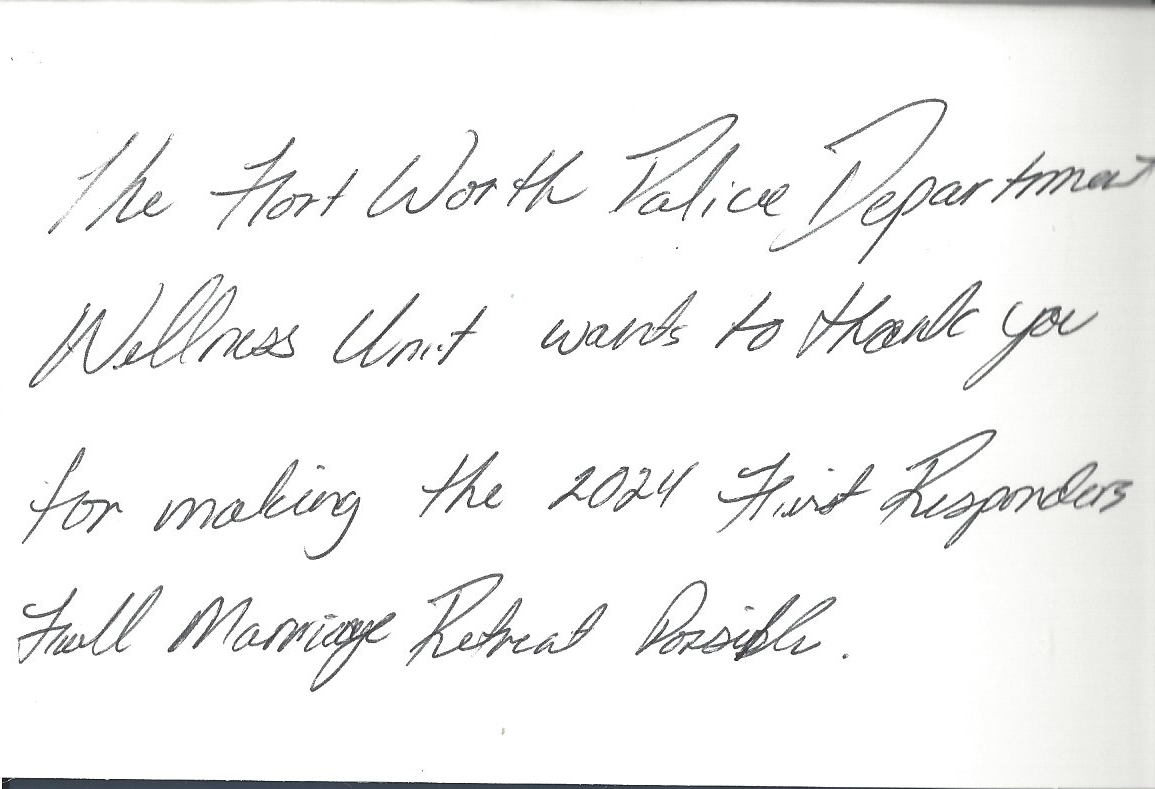 The Fort Worth Police Department
Wellness Unit wants to thank you
for making the 2024 First Responders
Fall Marriage Retreat Possible.